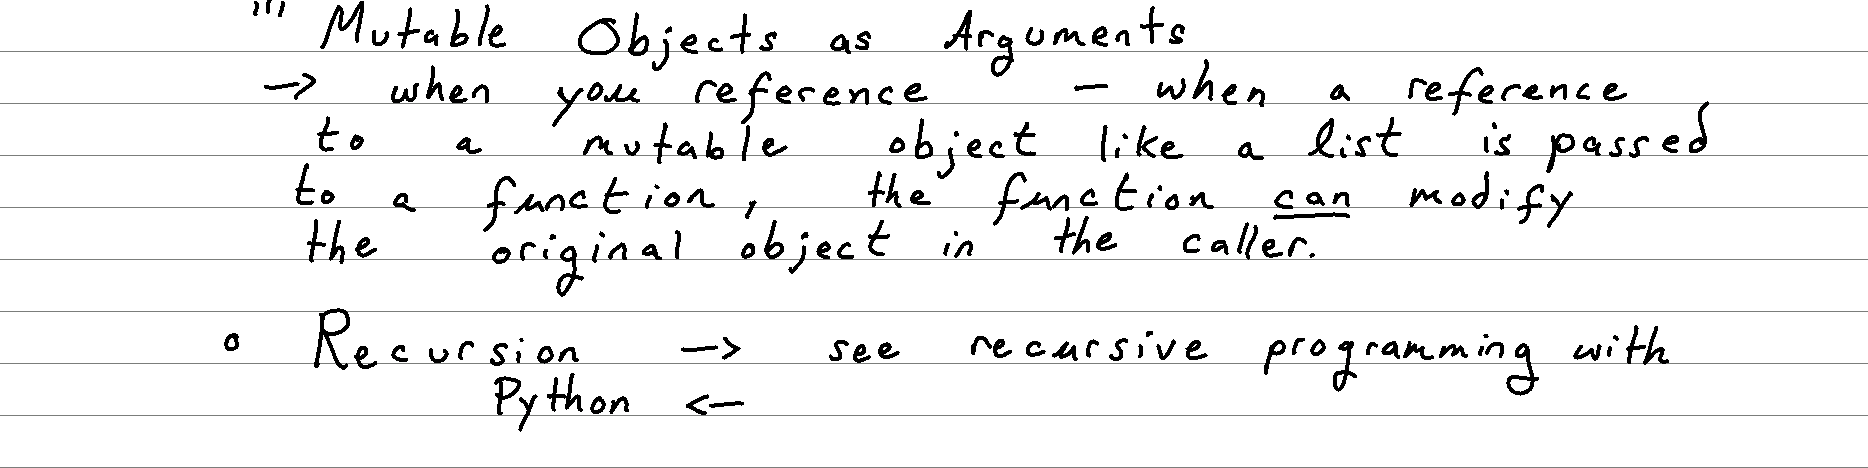 ''' Mutable Objects as Arguments
→ when you reference – when a reference
to a mutable object like a list is passed
to a function, the function can modify
the original object in the caller.
∘ Recursion → see recursive programming with
Python ←